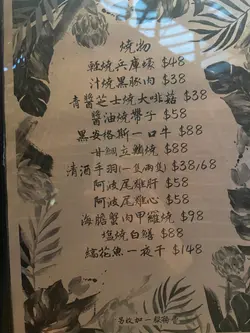 燒物
輕燒兵庫蠔 $48
汁燒黑豚肉 $38
青醬芝士燒大啡菇 $38
醬油燒帶子 $58
黑安格斯一口牛 $88
甘鯛立鱗燒 $88
清酒手羽(一隻/兩隻) $38/68
阿波尾雞肝 $58
阿波尾雞心 $58
海膽蟹肉甲羅燒 $98
塩燒白鱔 $88
緒花魚一夜干 $148
另收加一服務